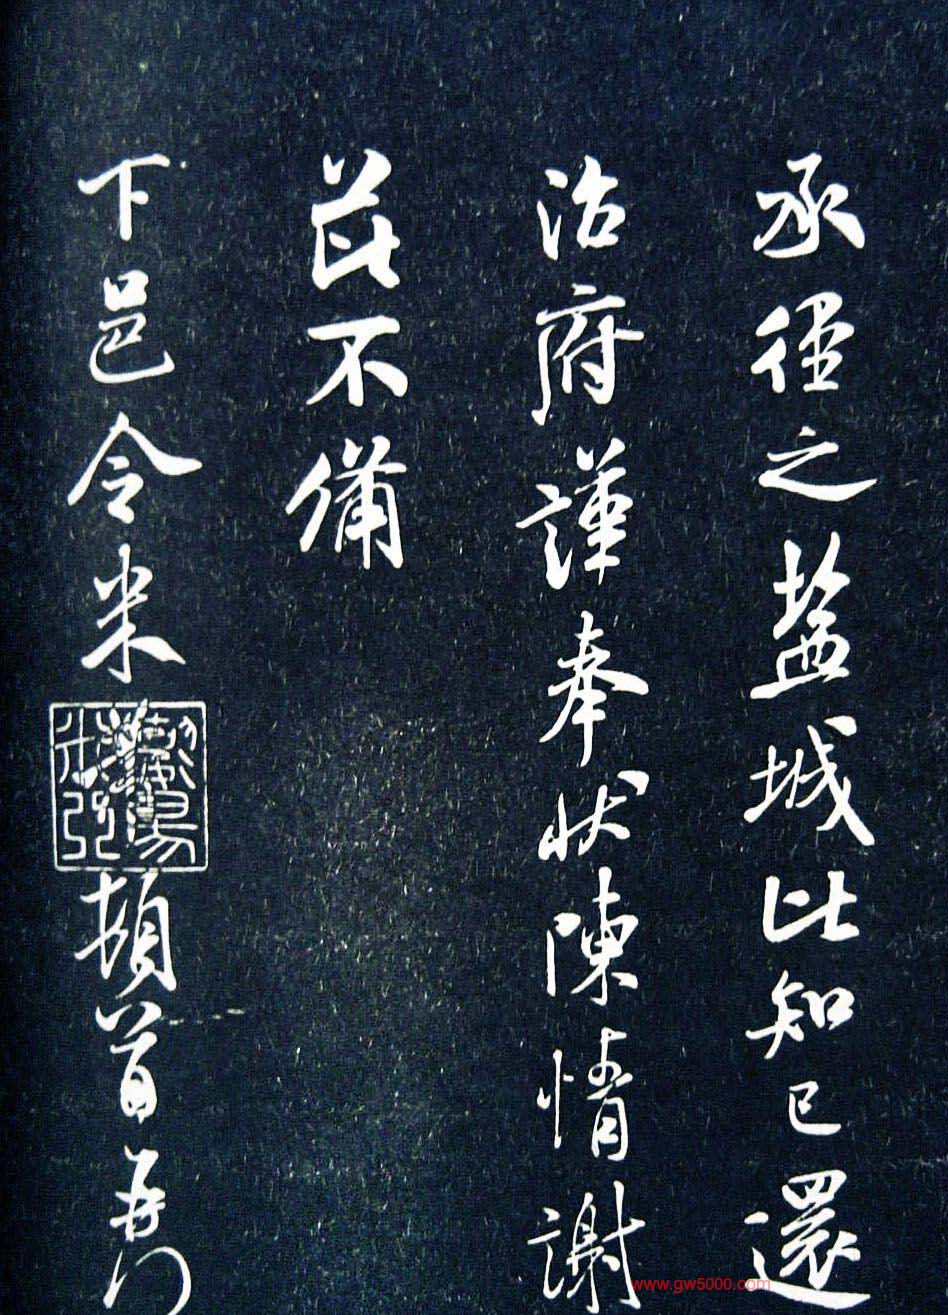 承徑之鹽城比知已還
治府謹奉狀陳情謝
茲不備
下邑令米
頓首再
www.gw5000.com